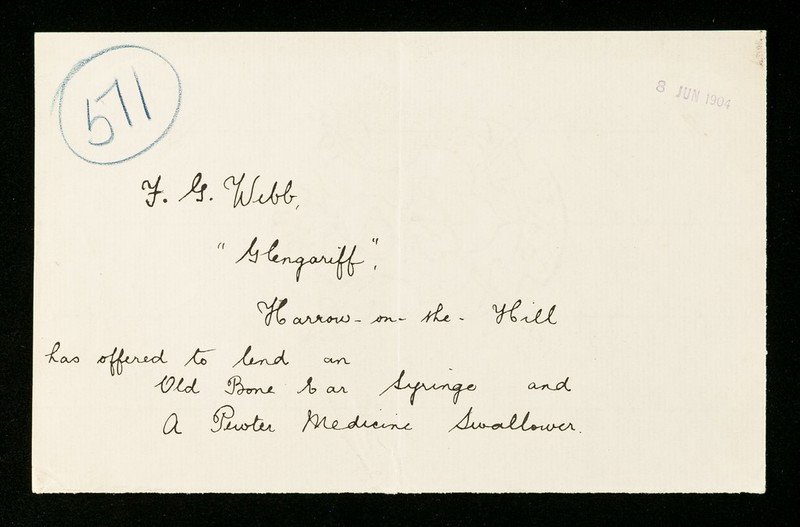 571
8 JUN 1904
F. G. Webb,
"Glengariff",
Harrow-on-the-Hill
has offered to lend an
Old Bone Ear Syringe and
A Pewter Medicine Swallower.